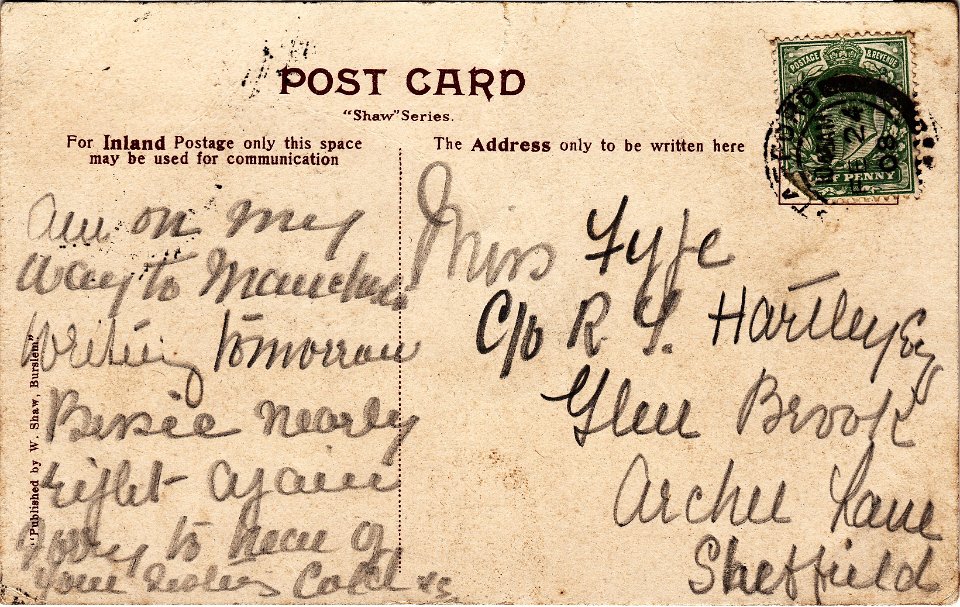 POST CARD
"Shaw" Series.
For Inland Postage only this space
may be used for communication
The Address only to be written here
POSTAGE & REVENUE
HALF PENNY
24
08
Am on my
way to Manchester
Writing tomorrow
Bessie nearly
right again
Sorry to hear of
your sisters Cold
Miss Fyfe
C/o R. S. Hartley Esq
Glen Brook
Archer Lane
Sheffield
"Published by W. Shaw, Burslem"